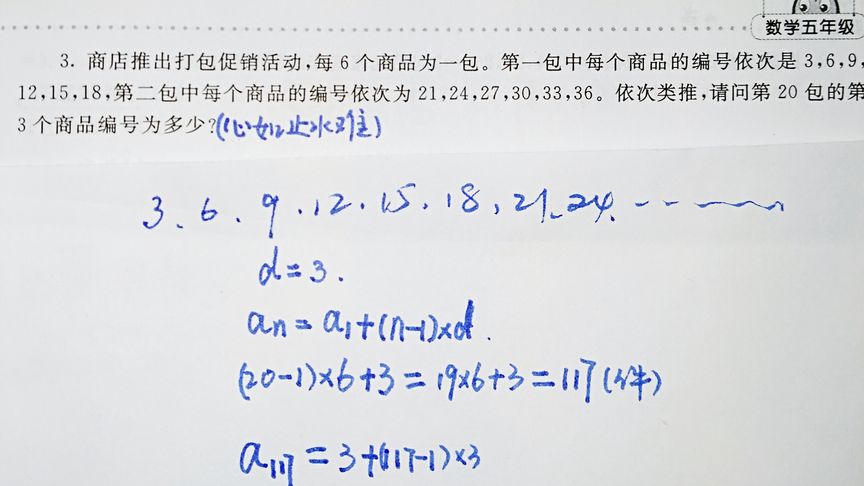 数学五年级
3. 商店推出打包促销活动,每6个商品为一包。第一包中每个商品的编号依次是3,6,9,
12,15,18,第二包中每个商品的编号依次为21,24,27,30,33,36。依次类推,请问第20包的第
3个商品编号为多少?(心如止水难)
3、6、9、12、15、18、21、24、……
d=3.
an=a1+(n-1)×d.
(20-1)×6+3=19×6+3=117(件)
a117=3+(117-1)×3